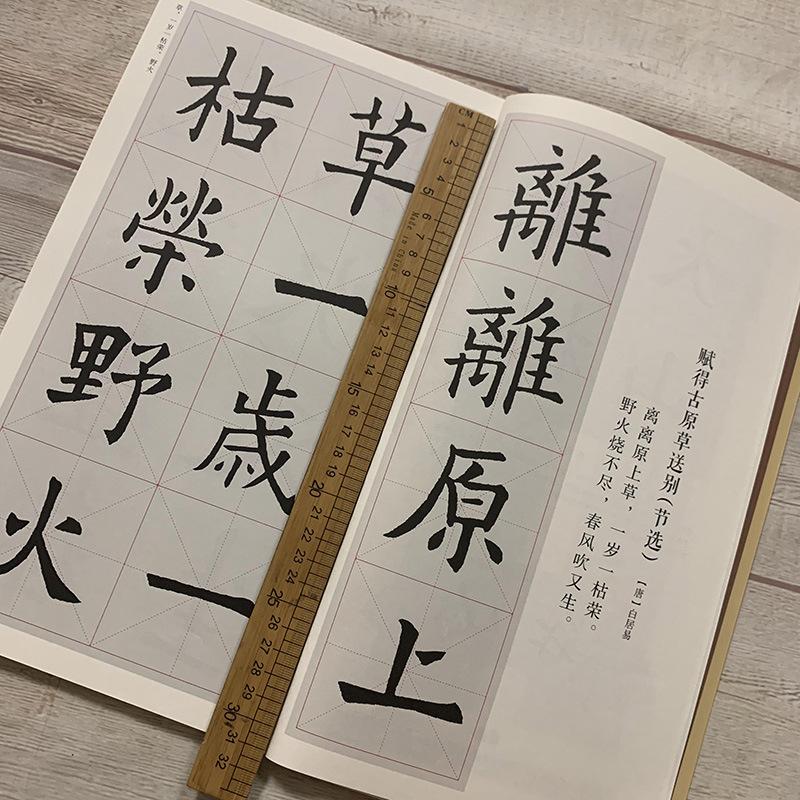 赋得古原草送别（节选）
【唐】白居易
离离原上草，一岁一枯荣。
野火烧不尽，春风吹又生。
離離原上
草一歲一
枯榮野火
草，一岁一枯荣。野火
CM
1 2 3 4 5 6 7 8 9 10 11 12 13 14 15 16 17 18 19 20 21 22 23 24 25 26 27 28 29 30 31 32
Made in China